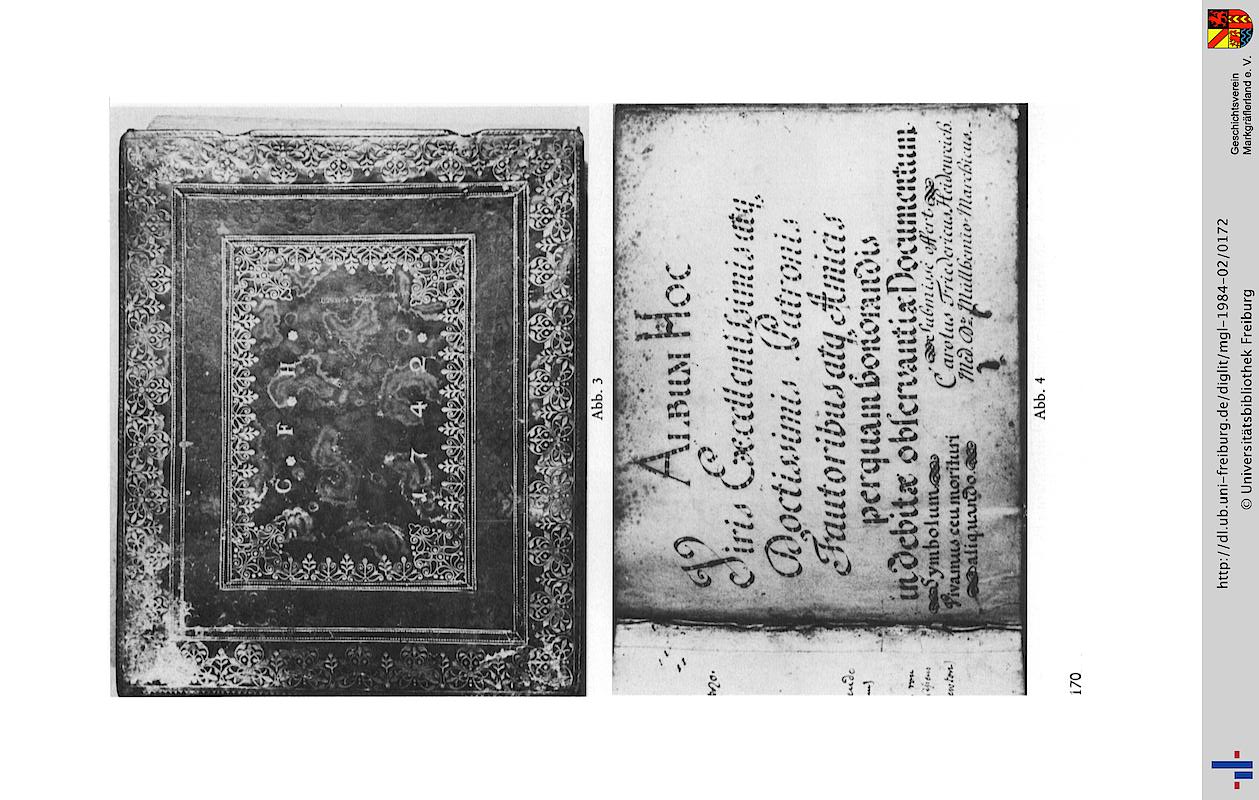 C · F · H ·
1 7 4 2
Abb. 3
ALBUM HOC
Viris Excellentissimis atq;
Doctissimis Patronis
Fautoribus atq; Amicis
perquam honorandis
in debitæ observantiæ Documentum
submisse offert
Carolus Fridericus Heidenreich
Symbolum
Vivamus ceu morituri
aliquando
Abb. 4
170
Geschichtsverein
Markgräflerland e. V.
http://dl.ub.uni-freiburg.de/diglit/mgl-1984-02/0172
© Universitätsbibliothek Freiburg